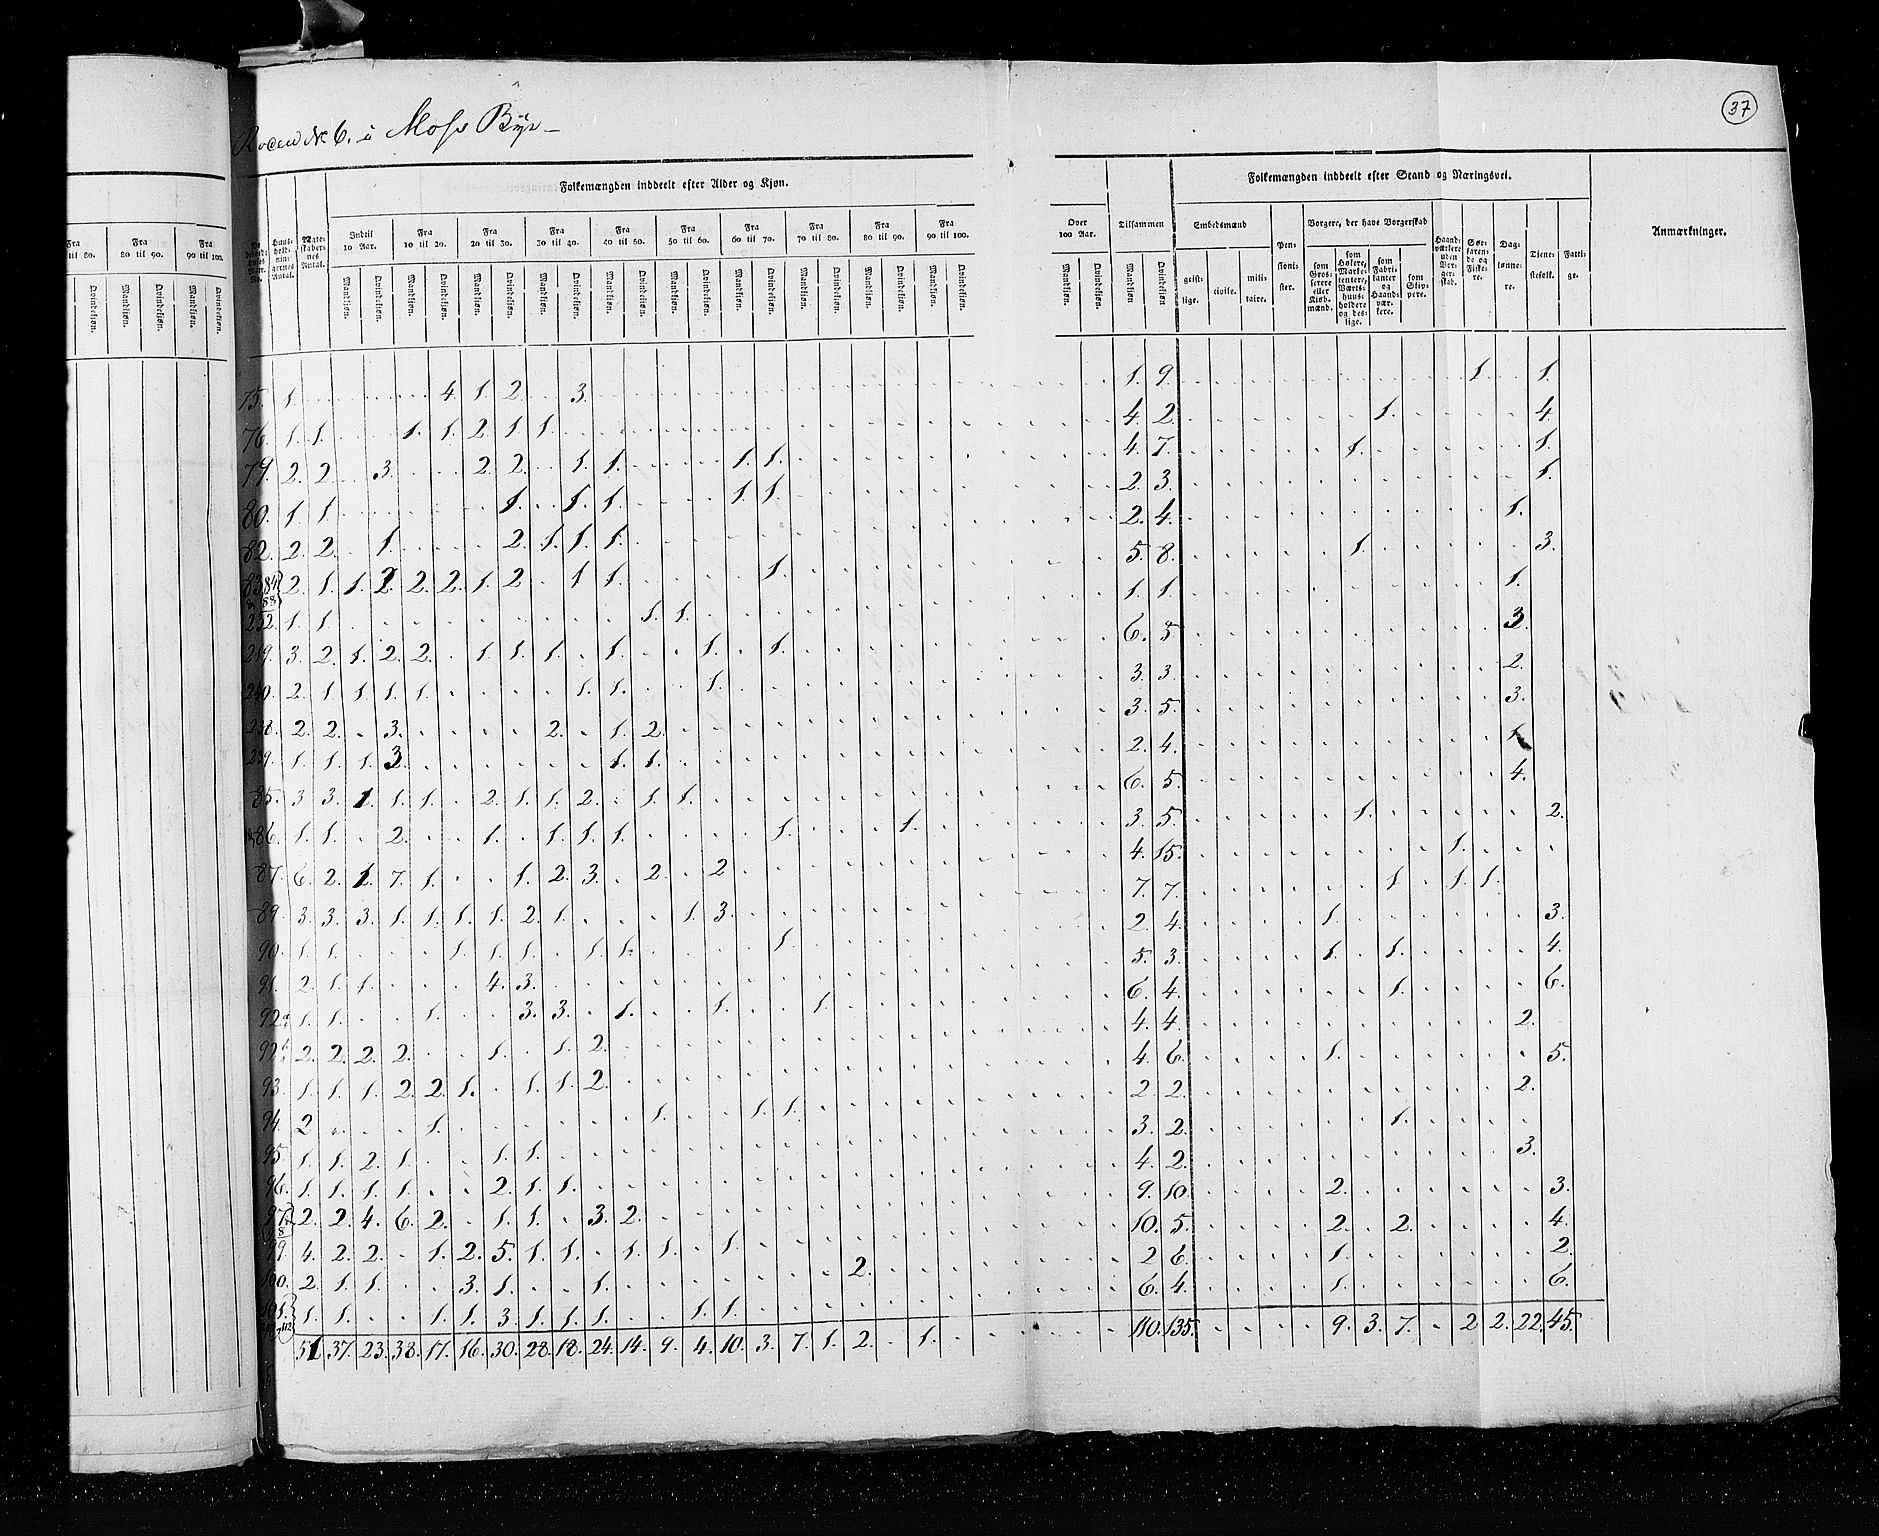 37
Roden № 6. i Moss Bye
Folkemængden inddeelt efter Alder og Kjøn.
Folkemængden inddeelt efter Stand og Næringsvei.
Huus-holdningernes Antal.
Ægteskabernes Antal.
Indtil 10 Aar.
Fra 10 til 20.
Fra 20 til 30.
Fra 30 til 40.
Fra 40 til 50.
Fra 50 til 60.
Fra 60 til 70.
Fra 70 til 80.
Fra 80 til 90.
Fra 90 til 100.
Over 100 Aar.
Tilsammen
Mandkjøn. Qvindekjøn.
Embedsmænd
geistlige. civile. militaire.
Pensionister.
Borgere, der have Borgerskab
som Grosserere eller Kjøbmænd.
som Høkere, Marketentere, Værtshuusholdere og deslige.
som Fabrikanter og Haandværkere.
som Skippere.
Haandværkere uden Borgerskab.
Søefarende og Fiskere.
Daglønnere.
Tjenestefolk.
Fattige.
Anmærkninger.
75. 1. 4. 1. 2. 3. 1. 9. 1. 1.
76. 1. 1. 1. 1. 2. 1. 1. 4. 2. 1. 4.
79. 2. 2. 3. 2. 2. 1. 1. 1. 1. 4. 7. 1. 1.
80. 1. 1. 1. 1. 1. 1. 1. 2. 3. 1.
82. 2. 2. 1. 2. 1. 1. 1. 2. 4. 1.
83. 84. 88. 2. 1. 1. 2. 2. 2. 1. 2. 1. 1. 1. 5. 8. 1. 3.
232. 1. 1. 1. 1. 1. 1. 1.
219. 3. 2. 1. 2. 2. 1. 1. 1. 1. 1. 1. 6. 5. 3.
240. 2. 1. 1. 1. 1. 1. 1. 1. 3. 3. 2.
238. 2. 2. 3. 2. 1. 2. 3. 5. 3.
239. 1. 1. 1. 3. 1. 1. 2. 4. 1.
85. 3. 3. 1. 1. 1. 2. 1. 1. 2. 1. 1. 6. 5. 4.
86. 1. 1. 2. 1. 1. 1. 1. 1. 1. 3. 5. 1. 2.
87. 6. 2. 1. 7. 1. 1. 2. 3. 2. 2 4. 15. 1.
89. 3. 3. 3. 1. 1. 1. 1. 2. 1. 1. 3. 7. 7. 1 1. 1.
90. 1. 1. 1. 1. 1. 1. 1. 1. 2. 4. 1. 3.
91. 2. 1. 1. 4. 3. 5. 3. 1. 1. 4.
92. 1. 1. 1. 3. 3. 1. 1. 1. 6. 4. 1. 6.
92. 2. 2. 2. 2. 1. 1. 2. 4. 4. 2.
93. 1. 1. 1. 2. 2. 1. 1. 1. 2. 4. 6. 1. 5.
94. 2 1. 1. 1. 1. 2. 2. 2.
95. 1. 1. 2. 1. 1. 1. 3. 2. 1.
96. 1. 1. 1. 1. 2. 1. 1. 4. 2. 3.
97. 2. 2. 4. 6. 2. 1. 1. 3. 2. 9. 10. 2. 3.
99. 4. 2. 2. 1. 2. 5. 1. 1. 1. 1. 1. 10. 5. 2. 2. 4.
100. 2. 1. 1. 3. 1. 1. 2. 2 6. 1. 2.
101. 112 1. 1. 1. 1. 3. 1. 1. 1. 1. 1. 6. 4. 1. 6.
51 37. 23. 38. 17. 16. 30. 28. 18. 24. 14. 9. 4. 10. 3. 7. 1. 2. 1. 110. 135. 9. 3. 7. 2 2. 22. 45.